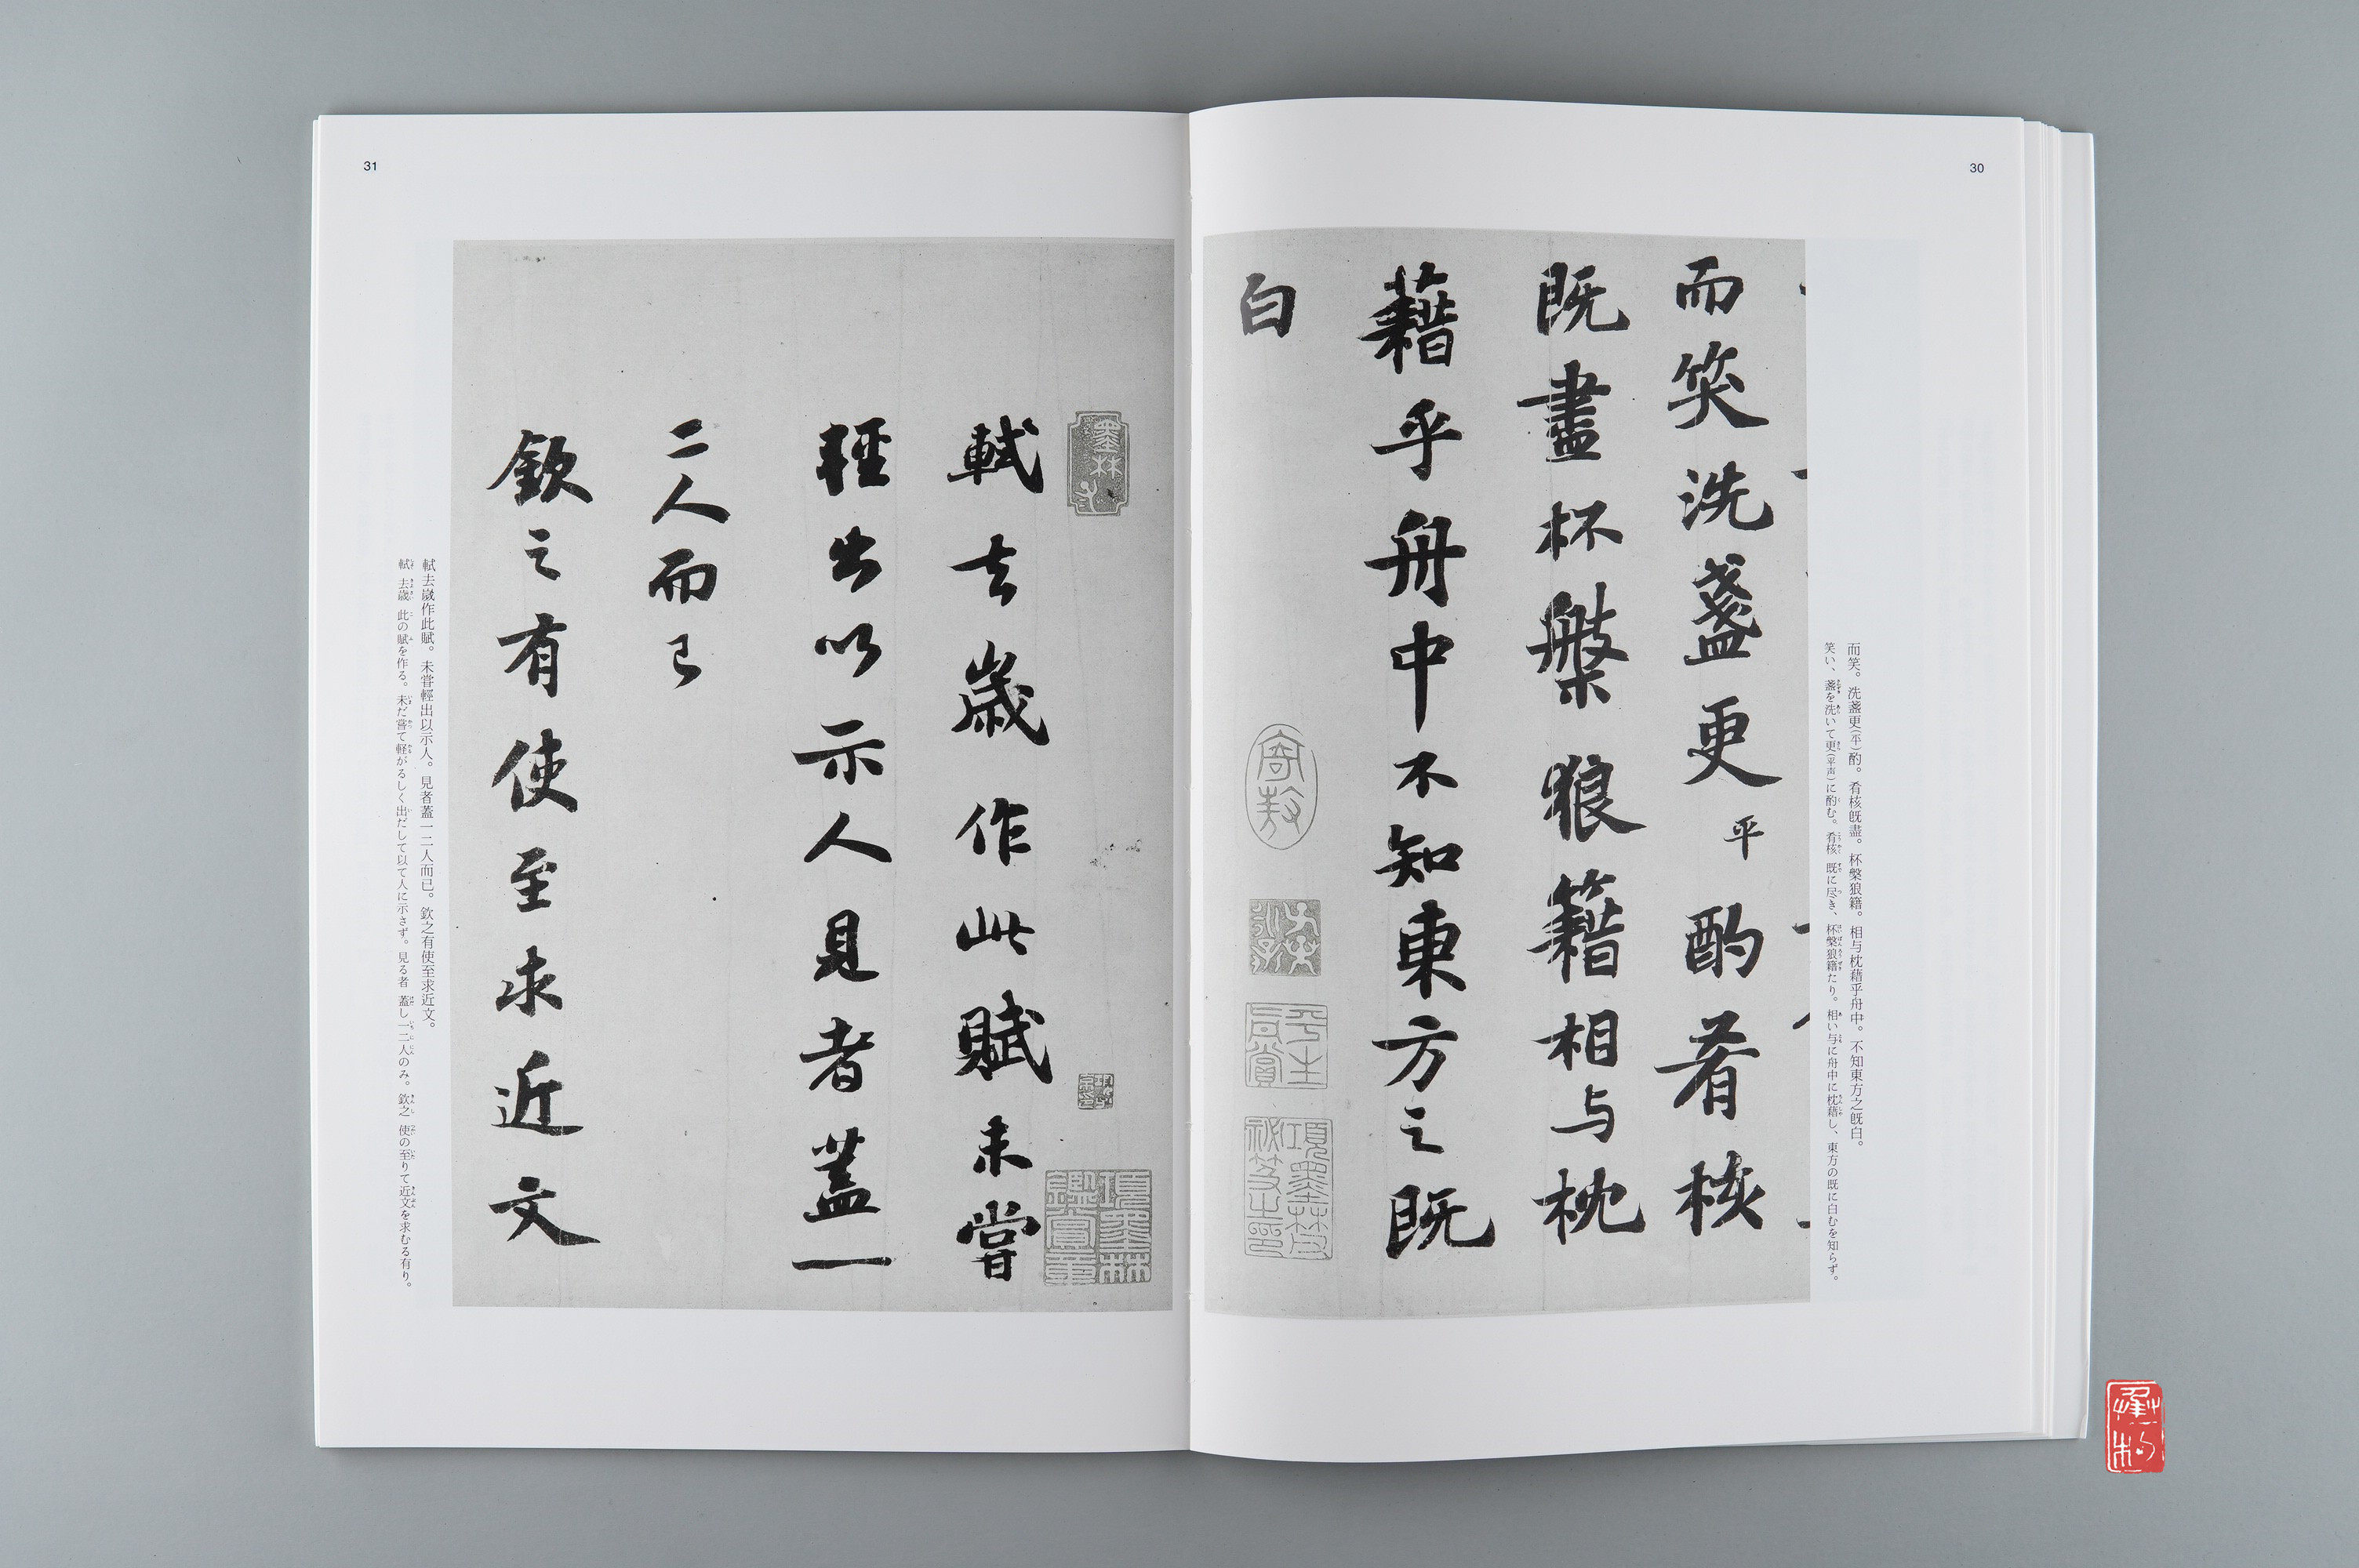 30
而笑。洗盞更(平)酌。肴核既盡。杯槃狼籍。相与枕藉乎舟中。不知東方之既白。
笑い、盞を洗いて更(平声)に酌む。肴核 既に尽き、杯槃狼籍たり。相い与に舟中に枕藉し、東方の既に白むを知らず。
而笑洗盞更平酌肴核
既盡杯槃狼籍相与枕
藉乎舟中不知東方之既
白
31
軾去歲作此賦未嘗
輕出以示人見者蓋一
二人而已
欽之有使至求近文
軾去歲作此賦。未嘗輕出以示人。見者蓋一二人而已。欽之有使至求近文。
軾 去歳 此の賦を作る。未だ嘗て軽がるしく出だして以て人に示さず。見る者 蓋し一二人のみ。欽之 使の至りて近文を求むる有り。
平生
真賞
項墨林
鑑賞章